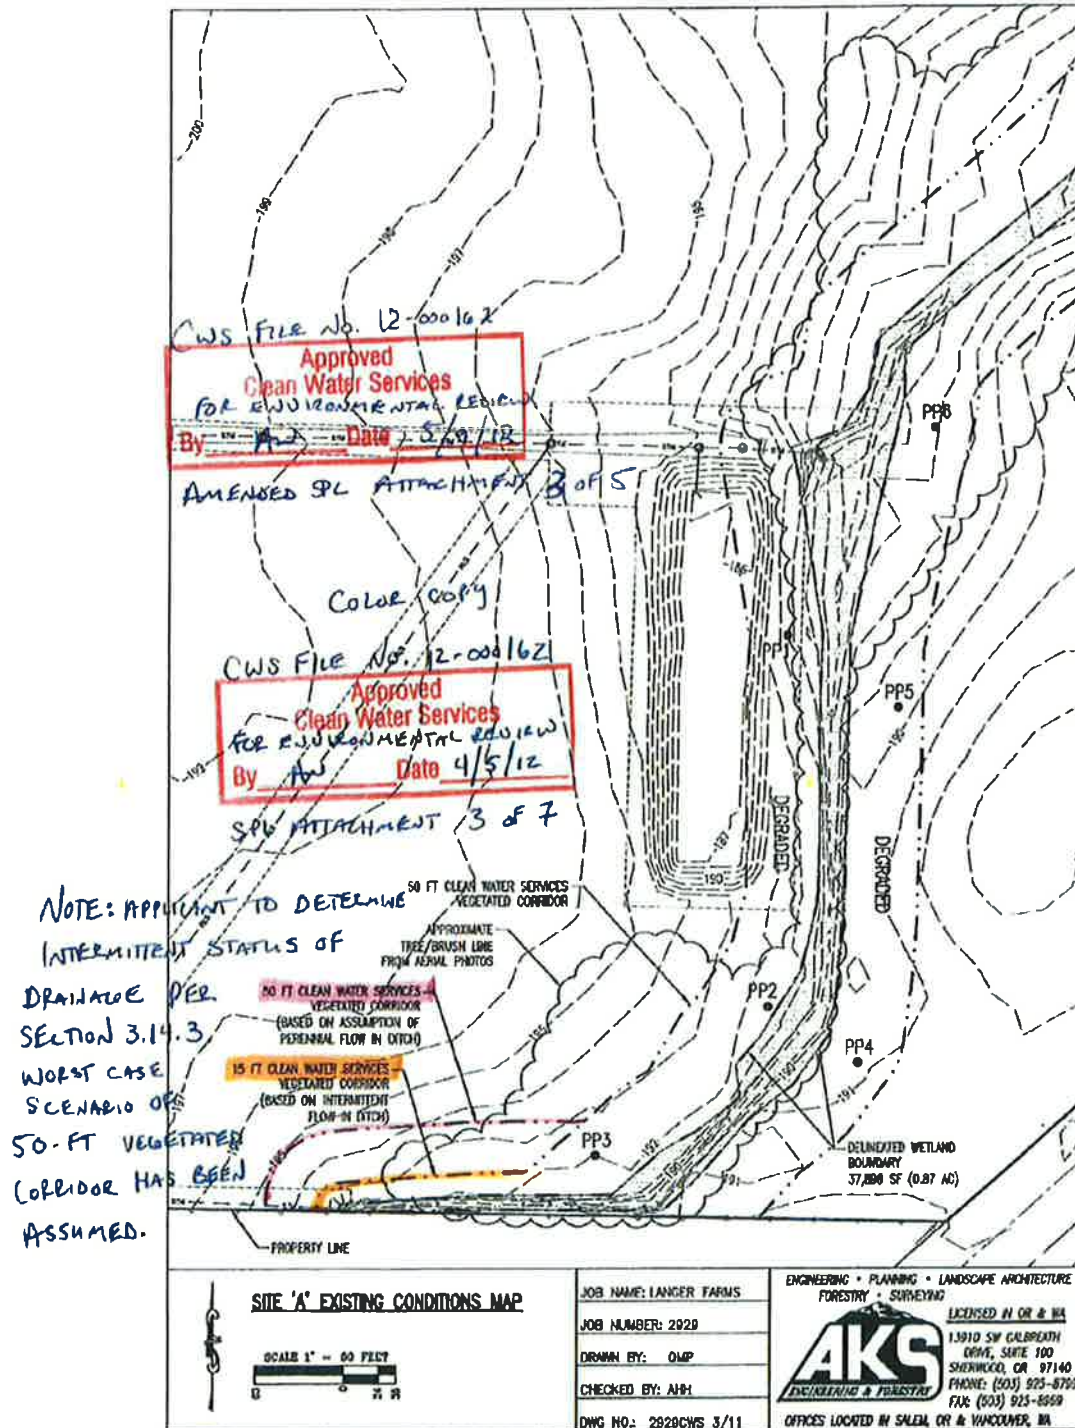 200
199
198
197
195
CWS FILE No. 12-000162
Approved
Clean Water Services
FOR ENVIRONMENTAL REVIEW
By AW Date
AMENDED SPL ATTACHMENT 3 OF 5
COLOR COPY
CWS FILE No. 12-000162
Approved
Clean Water Services
FOR ENVIRONMENTAL REVIEW
By AW Date 4/5/12
SPL ATTACHMENT 3 of 7
193
PP6
186
PP1
PP5
DEGRADED
DEGRADED
187
190
NOTE: APPLICANT TO DETERMINE
INTERMITTENT STATUS OF
DRAINAGE PER
SECTION 3.14.3
WORST CASE
SCENARIO OF
50-FT VEGETATED
CORRIDOR HAS BEEN
ASSUMED.
50 FT CLEAN WATER SERVICES
VEGETATED CORRIDOR
APPROXIMATE
TREE/BRUSH LINE
FROM AERIAL PHOTOS
50 FT CLEAN WATER SERVICES
VEGETATED CORRIDOR
(BASED ON ASSUMPTION OF
PERENNIAL FLOW IN DITCH)
15 FT CLEAN WATER SERVICES
VEGETATED CORRIDOR
(BASED ON INTERMITTENT
FLOW IN DITCH)
195
PP2
PP4
191
PP3
192
191
DELINEATED WETLAND
BOUNDARY
37,898 SF (0.87 AC)
PROPERTY LINE
SITE 'A' EXISTING CONDITIONS MAP
SCALE 1" = 60 FEET
JOB NAME: LANGER FARMS
JOB NUMBER: 2929
DRAWN BY: OMP
CHECKED BY: AHH
DWG NO.: 2929CWS 3/11
ENGINEERING • PLANNING • LANDSCAPE ARCHITECTURE
FORESTRY • SURVEYING
AKS
ENGINEERING & FORESTRY
LICENSED IN OR & WA
13910 SW GALBREATH
DRIVE, SUITE 100
SHERWOOD, OR 97140
PHONE: (503) 925-8799
FAX: (503) 925-8969
OFFICES LOCATED IN SALEM, OR & VANCOUVER, WA